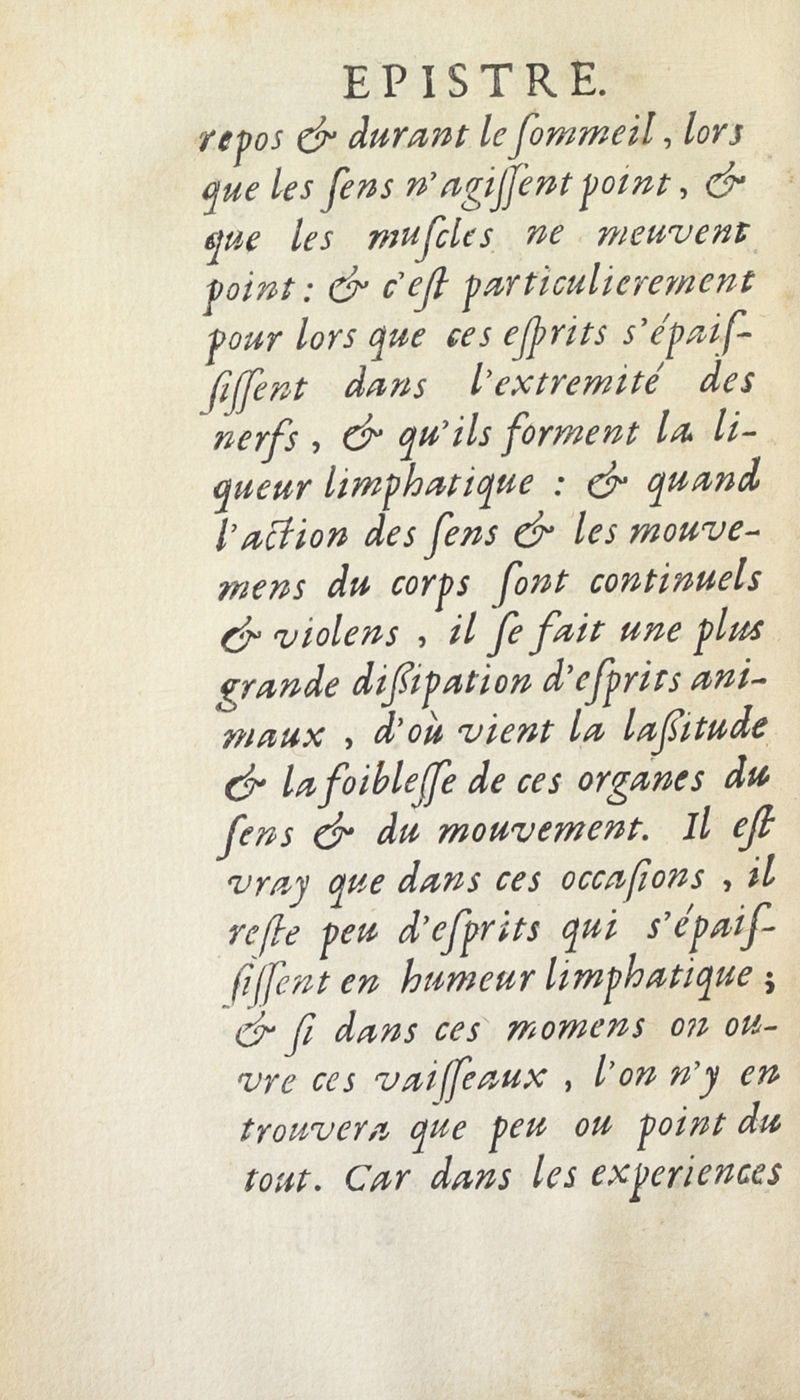 EPISTRE.
repos & durant le ſommeil, lors
que les ſens n'agiſſent point, &
que les muſcles ne meuvent
point: & c'eſt particulierement
pour lors que ces eſprits s'épaiſ-
ſiſſent dans l'extremité des
nerfs, & qu'ils forment la li-
queur limphatique : & quand
l'action des ſens & les mouve-
mens du corps ſont continuels
& violens , il ſe fait une plus
grande diſſipation d'eſprits ani-
maux , d'où vient la laſſitude
& la foibleſſe de ces organes du
ſens & du mouvement. Il eſt
vray que dans ces occaſions , il
reſte peu d'eſprits qui s'épaiſ-
ſiſſent en humeur limphatique ;
& ſi dans ces momens on ou-
vre ces vaiſſeaux , l'on n'y en
trouvera que peu ou point du
tout. Car dans les experiences